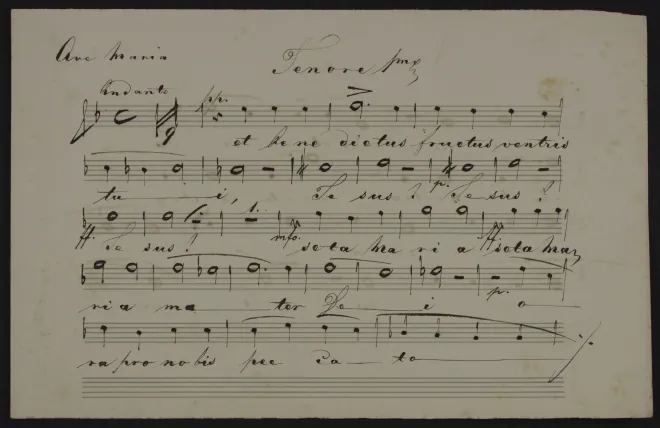 Ave Maria
Tenore pmo
Andante
pp.
et be ne dictus fructus ventris
tu i, Je sus! Je sus!
p.
ff. Je sus! mfo. sola ma ri a ff sola ma
1..
ri a ma ter De i o
p.
ra pro no bis pec ca to